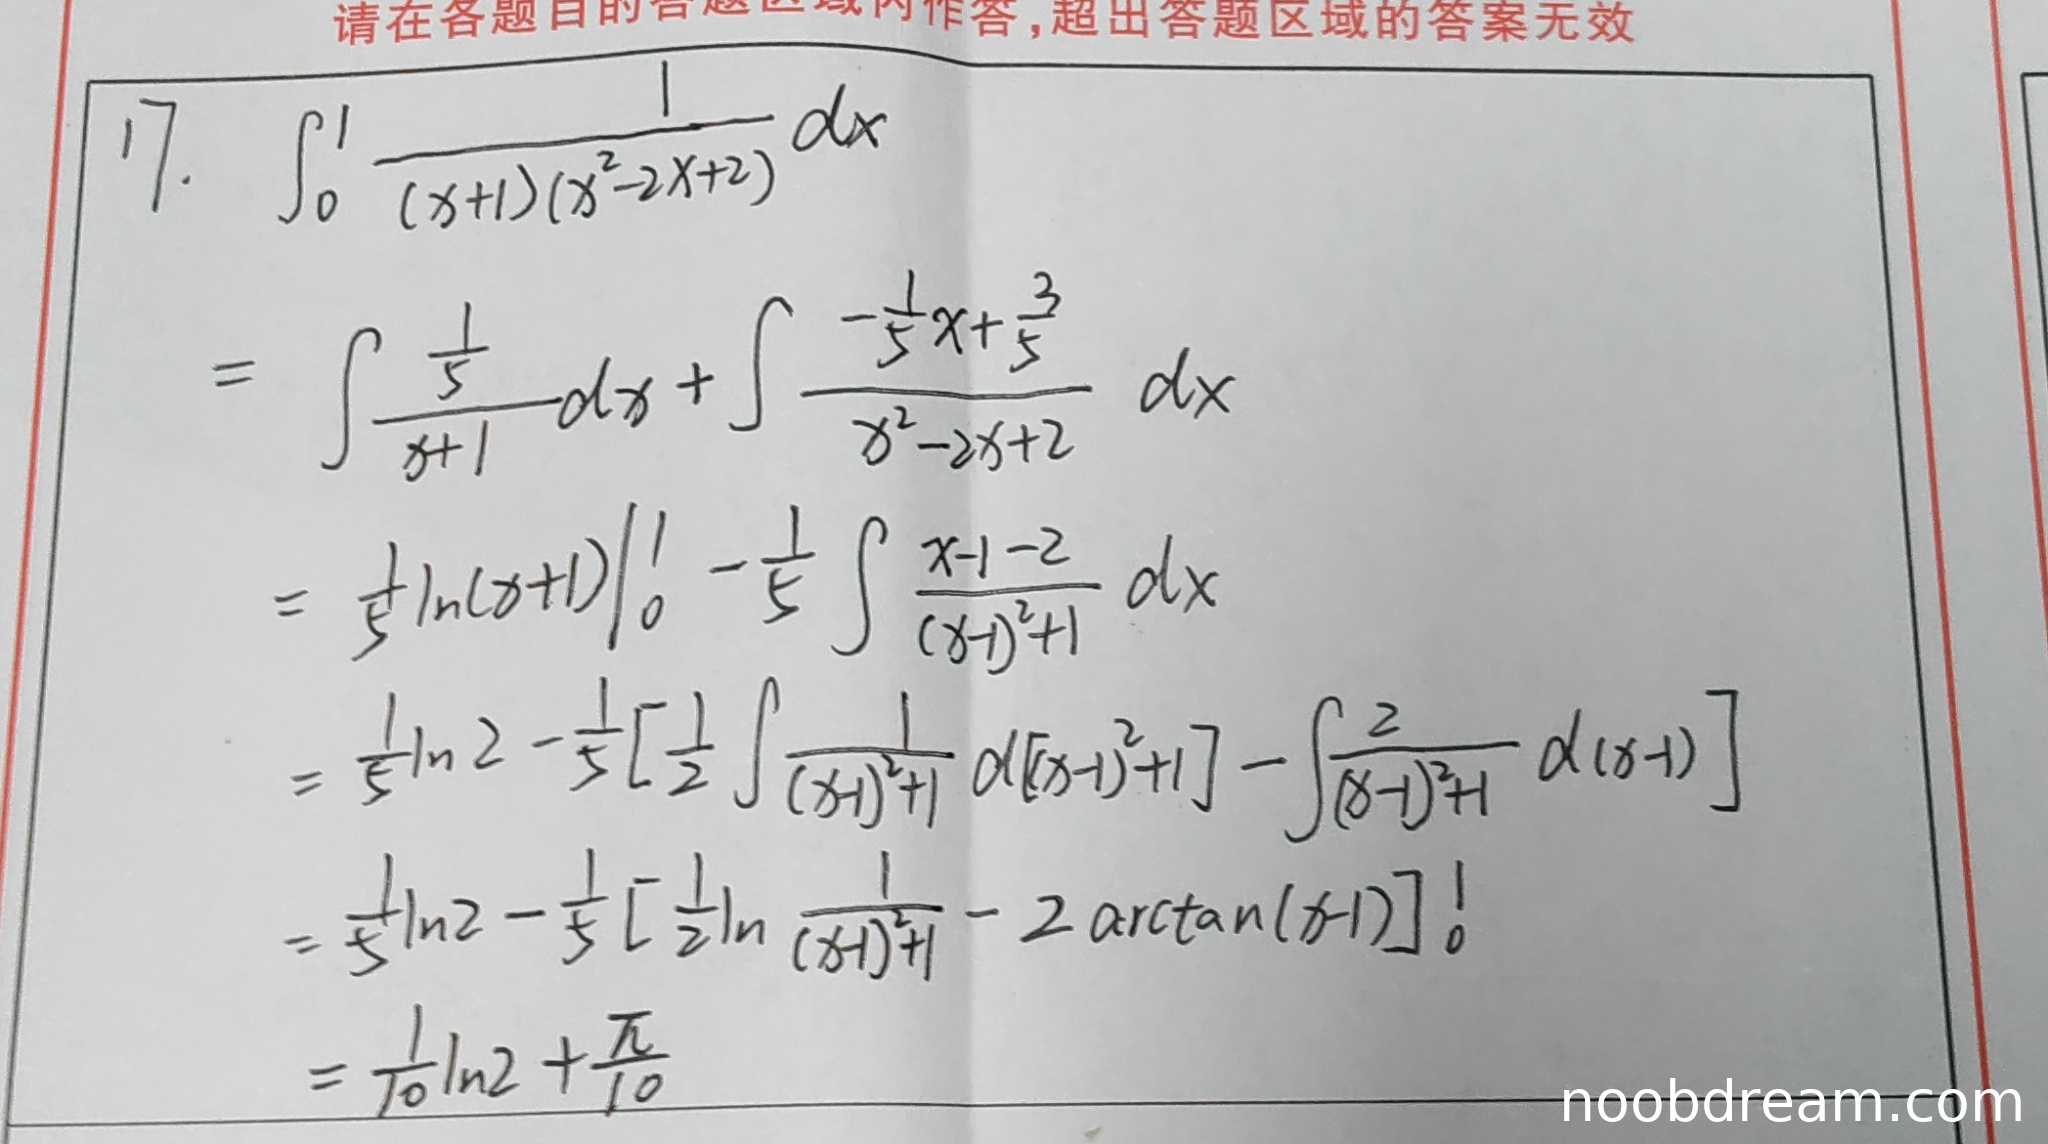 请在各题目的答题区域内作答,超出答题区域的答案无效
17. ∫₀¹ 1/((x+1)(x²-2x+2)) dx
= ∫ (1/5)/(x+1) dx + ∫ (-1/5 x + 3/5)/(x²-2x+2) dx
= 1/5 ln(x+1)|₀¹ - 1/5 ∫ (x-1-2)/((x-1)²+1) dx
= 1/5 ln2 - 1/5 [1/2 ∫ 1/((x-1)²+1) d[(x-1)²+1] - ∫ 2/((x-1)²+1) d(x-1)]
= 1/5 ln2 - 1/5 [1/2 ln 1/((x-1)²+1) - 2 arctan(x-1)]₀¹
= 1/10 ln2 + π/10
noobdream.com